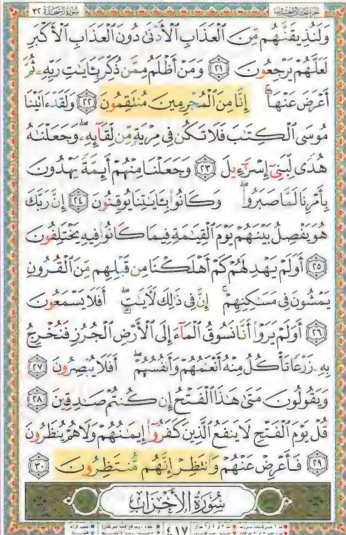 سورة السجدة ٣٢
وَلَنُذِيقَنَّهُم مِّنَ ٱلْعَذَابِ ٱلْأَدْنَىٰ دُونَ ٱلْعَذَابِ ٱلْأَكْبَرِ
لَعَلَّهُمْ يَرْجِعُونَ ٢١ وَمَنْ أَظْلَمُ مِمَّن ذُكِّرَ بِـَٔايَـٰتِ رَبِّهِۦ ثُمَّ
أَعْرَضَ عَنْهَآ إِنَّا مِنَ ٱلْمُجْرِمِينَ مُنتَقِمُونَ ٢٢ وَلَقَدْ ءَاتَيْنَا
مُوسَى ٱلْكِتَـٰبَ فَلَا تَكُن فِى مِرْيَةٍ مِّن لِّقَآئِهِۦ وَجَعَلْنَـٰهُ
هُدًى لِّبَنِىٓ إِسْرَٰٓءِيلَ ٢٣ وَجَعَلْنَا مِنْهُمْ أَئِمَّةً يَهْدُونَ
بِأَمْرِنَا لَمَّا صَبَرُوا۟ وَكَانُوا۟ بِـَٔايَـٰتِنَا يُوقِنُونَ ٢٤ إِنَّ رَبَّكَ
هُوَ يَفْصِلُ بَيْنَهُمْ يَوْمَ ٱلْقِيَـٰمَةِ فِيمَا كَانُوا۟ فِيهِ يَخْتَلِفُونَ
٢٥ أَوَلَمْ يَهْدِ لَهُمْ كَمْ أَهْلَكْنَا مِن قَبْلِهِم مِّنَ ٱلْقُرُونِ
يَمْشُونَ فِى مَسَـٰكِنِهِمْ إِنَّ فِى ذَٰلِكَ لَـَٔايَـٰتٍ أَفَلَا يَسْمَعُونَ
٢٦ أَوَلَمْ يَرَوْا۟ أَنَّا نَسُوقُ ٱلْمَآءَ إِلَى ٱلْأَرْضِ ٱلْجُرُزِ فَنُخْرِجُ
بِهِۦ زَرْعًا تَأْكُلُ مِنْهُ أَنْعَـٰمُهُمْ وَأَنفُسُهُمْ أَفَلَا يُبْصِرُونَ ٢٧
وَيَقُولُونَ مَتَىٰ هَـٰذَا ٱلْفَتْحُ إِن كُنتُمْ صَـٰدِقِينَ ٢٨
قُلْ يَوْمَ ٱلْفَتْحِ لَا يَنفَعُ ٱلَّذِينَ كَفَرُوٓا۟ إِيمَـٰنُهُمْ وَلَا هُمْ يُنظَرُونَ
٢٩ فَأَعْرِضْ عَنْهُمْ وَٱنتَظِرْ إِنَّهُم مُّنتَظِرُونَ ٣٠
سُورَةُ الأَحْزَابِ
٤١٧